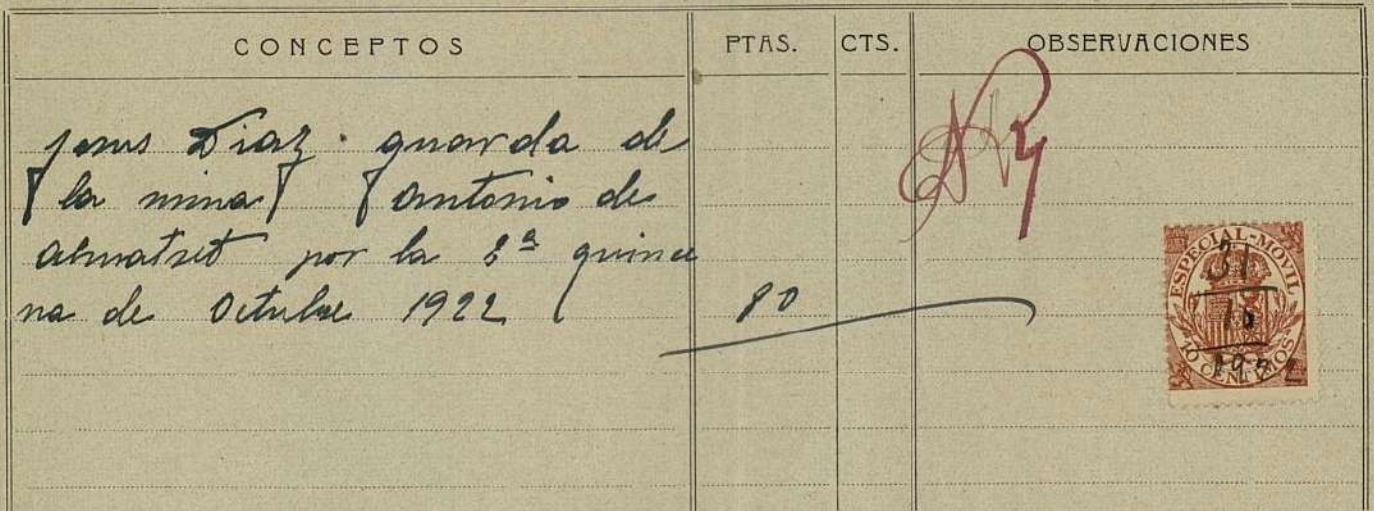 CONCEPTOS PTAS. CTS. OBSERVACIONES
Jesus Diaz. guarda de
la mina Antonio de
Almatret por la 2ª quince
na de Octubre 1922 80
ESPECIAL-MOVIL
31
10
1922
10 CENTIMOS